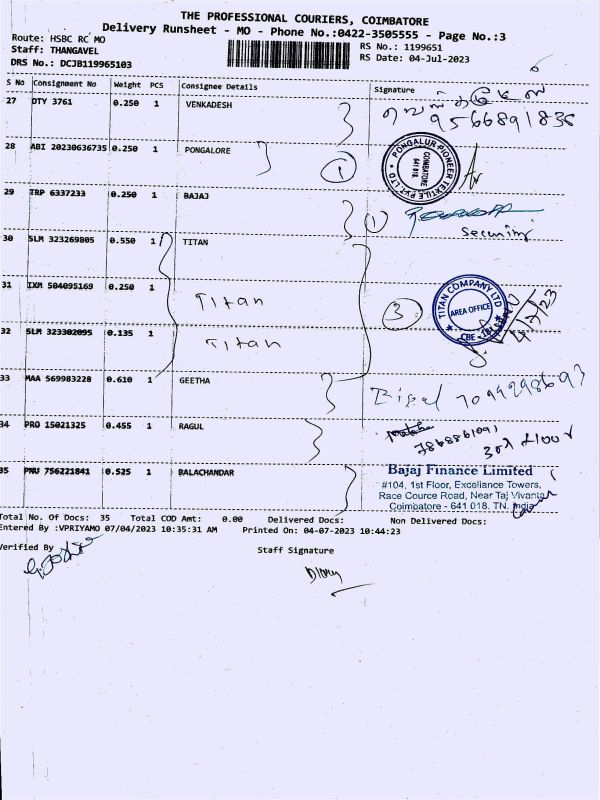 THE PROFESSIONAL COURIERS, COIMBATORE
Delivery Runsheet - MO - Phone No.:0422-3505555 - Page No.:3
Route: HSBC RC MO
Staff: THANGAVEL
DRS No.: DCJB119965103
RS No.: 1199651
RS Date: 04-Jul-2023
S No Consignment No Weight PCS Consignee Details Signature
27 DTY 3761 0.250 1 VENKADESH
9566891836
28 ABI 20230636735 0.250 1 PONGALORE
1
PONGALUR PIONEER TEXTILE PVT LTD
COIMBATORE
641 018
29 TRP 6337233 0.250 1 BAJAJ
1
Security
30 SLM 323269805 0.550 1 TITAN
31 IXM 504095169 0.250 1 Titan
3
TITAN COMPANY LTD
AREA OFFICE
CBE - 18
4/7/23
32 SLM 323302095 0.135 1 Titan
33 MAA 569983228 0.610 1 GEETHA
34 PRO 15021325 0.455 1 RAGUL
7868861091
35 PNU 756221841 0.525 1 BALACHANDAR
Bajaj Finance Limited
#104, 1st Floor, Excellance Towers,
Race Cource Road, Near Taj Vivanta
Coimbatore - 641 018. TN. India
Total No. Of Docs: 35 Total COD Amt: 0.00 Delivered Docs: Non Delivered Docs:
Entered By :VPRIYAMO 07/04/2023 10:35:31 AM Printed On: 04-07-2023 10:44:23
Verified By
Staff Signature